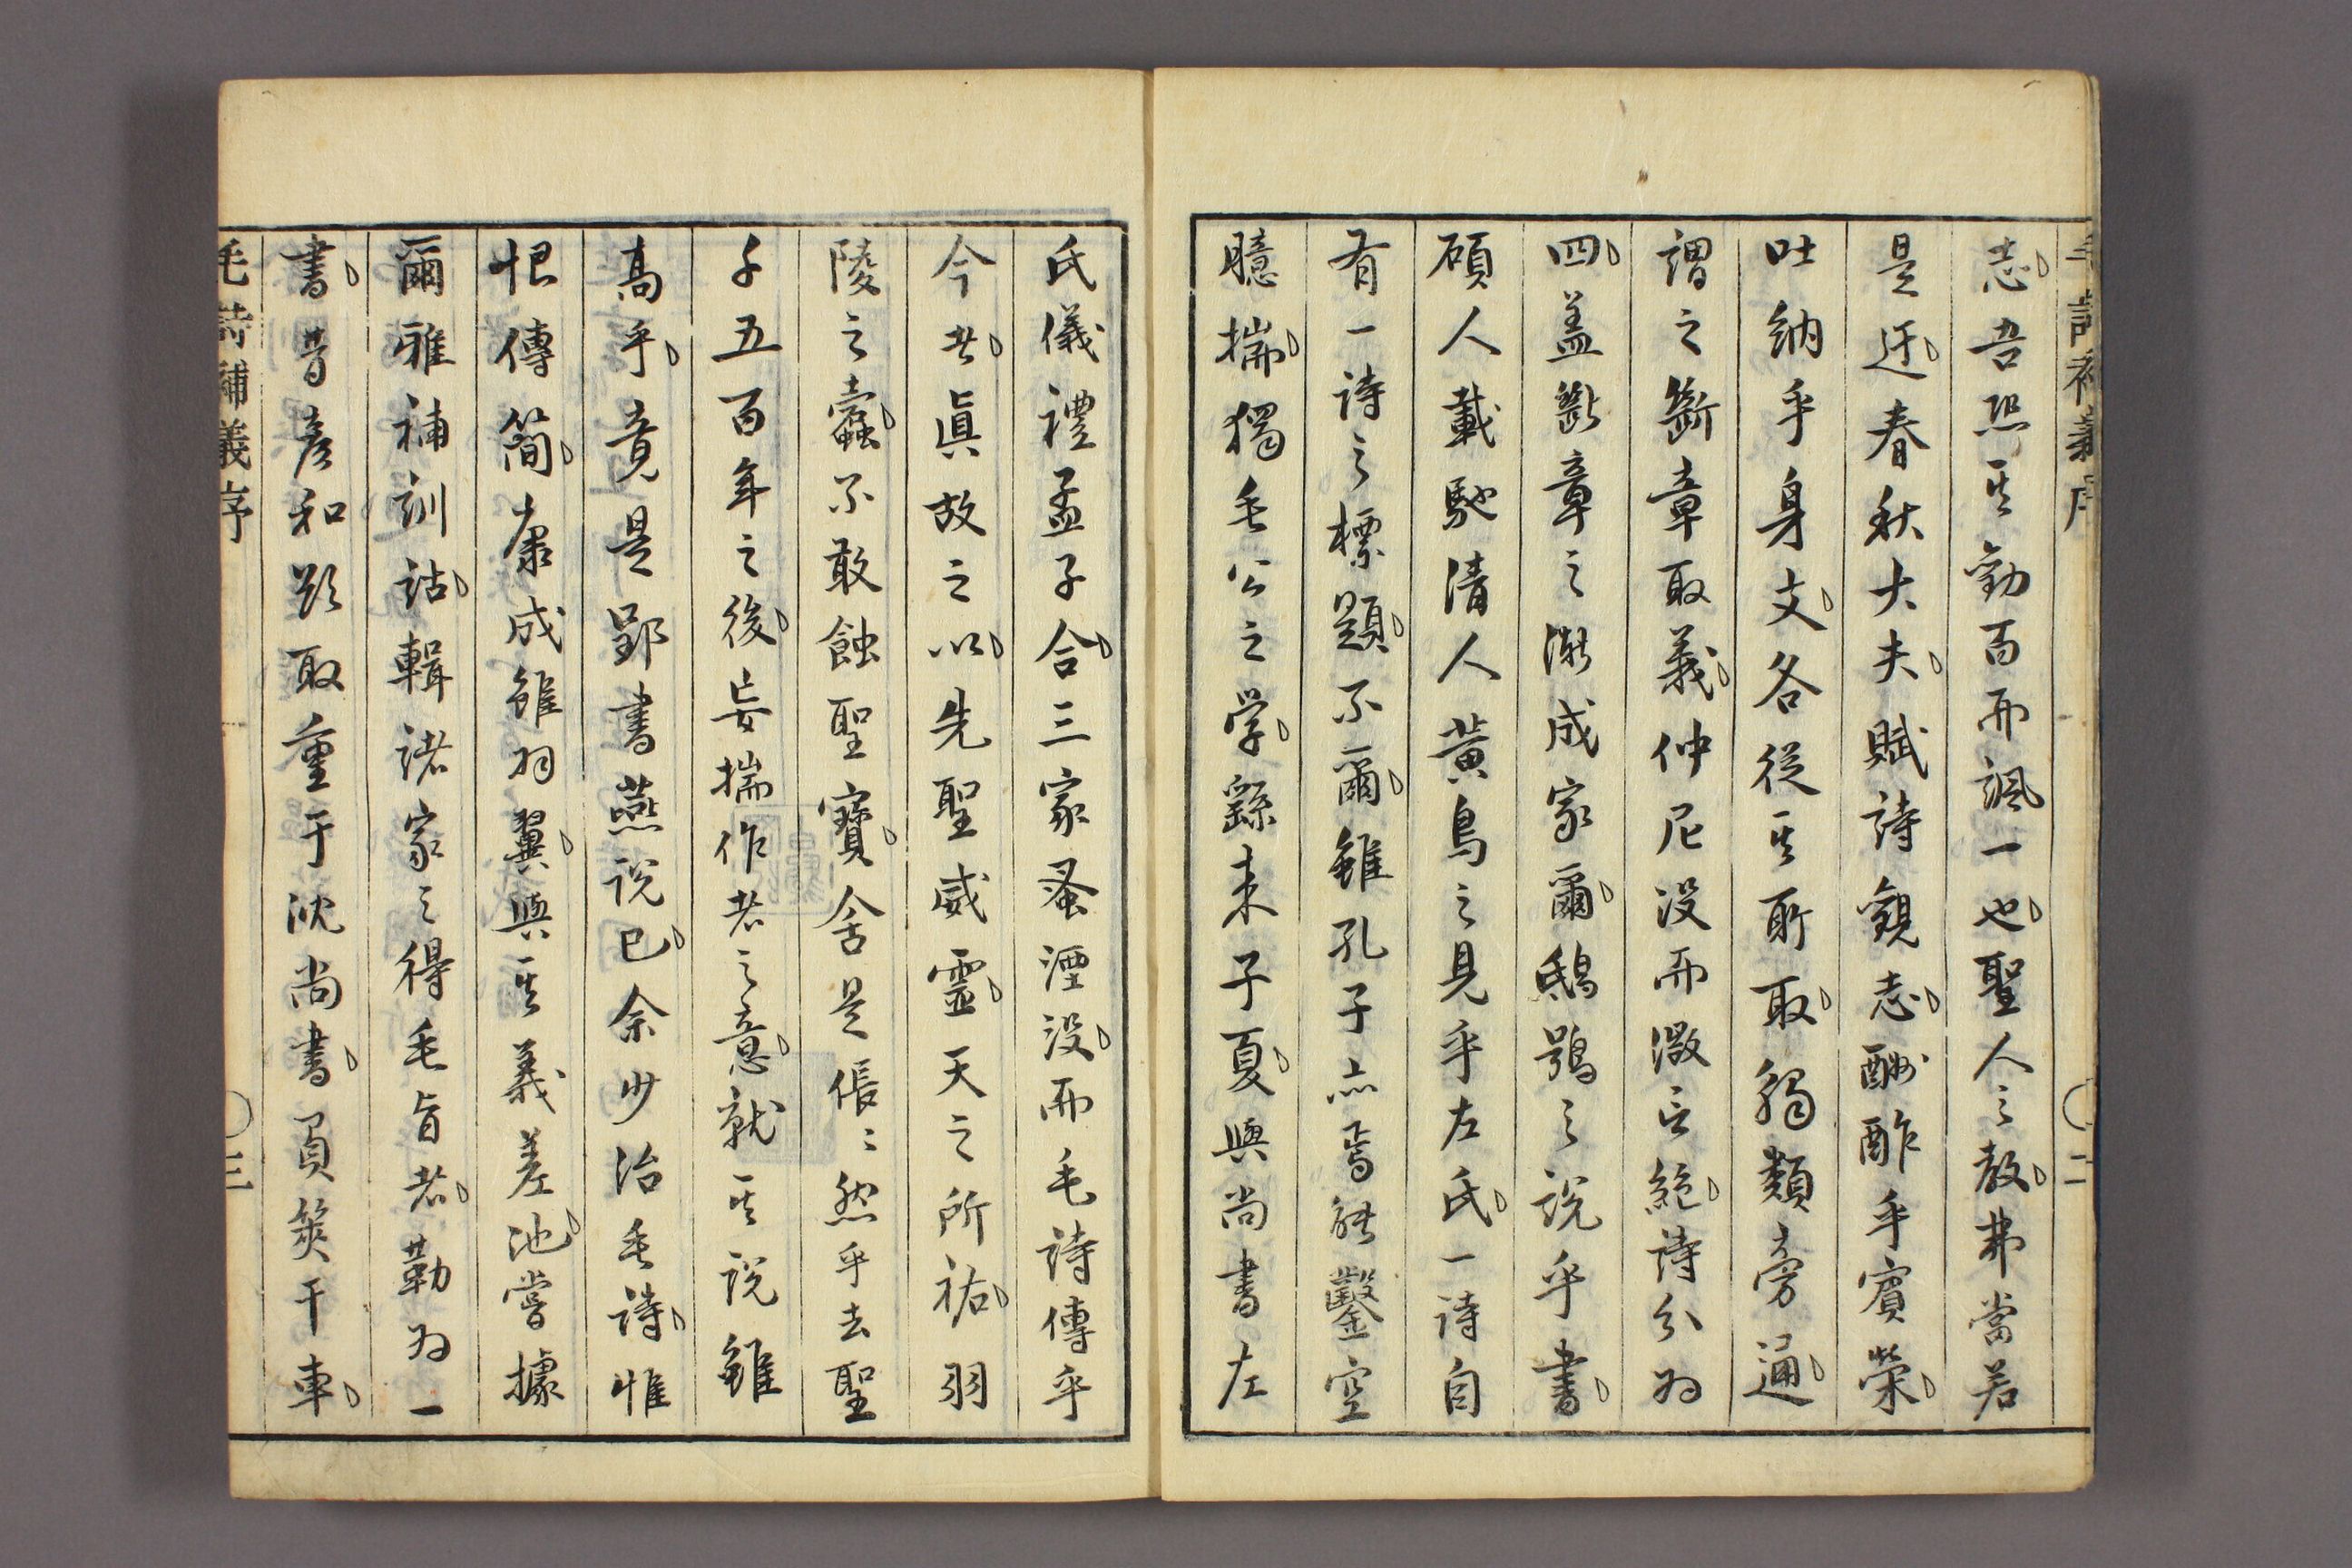 毛詩補義序
二
志、吾恐其勸百而諷一也、聖人之教、弗當若
是迂、春秋大夫、賦詩觀志、酬酢乎賓榮、
吐納乎身文、各從其所取、觸類旁通、
謂之斷章取義、仲尼没而微言絶、詩分為
四、蓋斷章之漸成家爾、鴟鴞之説乎書、
碩人載馳清人黄鳥之見乎左氏、一詩自
有一詩之標題、不爾、雖孔子亦焉能鑿空
臆揣、獨毛公之学、繇来子夏、與尚書左
氏儀禮孟子合、三家蚤湮没、而毛詩傳乎
今者、眞故之以、先聖威靈、天之所祐、羽
陵之蠹、不敢蝕聖寶、舍是倀〻然乎去聖
千五百年之後、妄揣作者之意、就其説雖
高乎、竟是郢書燕説已、余少治毛詩、惟
恨傳簡、康成雖羽翼、與其義差池、嘗據
爾雅補訓詁、輯諸家之得毛旨者、勒為一
書、昔彦和欲取重于沈尚書、負笈干車、
毛詩補義序
三